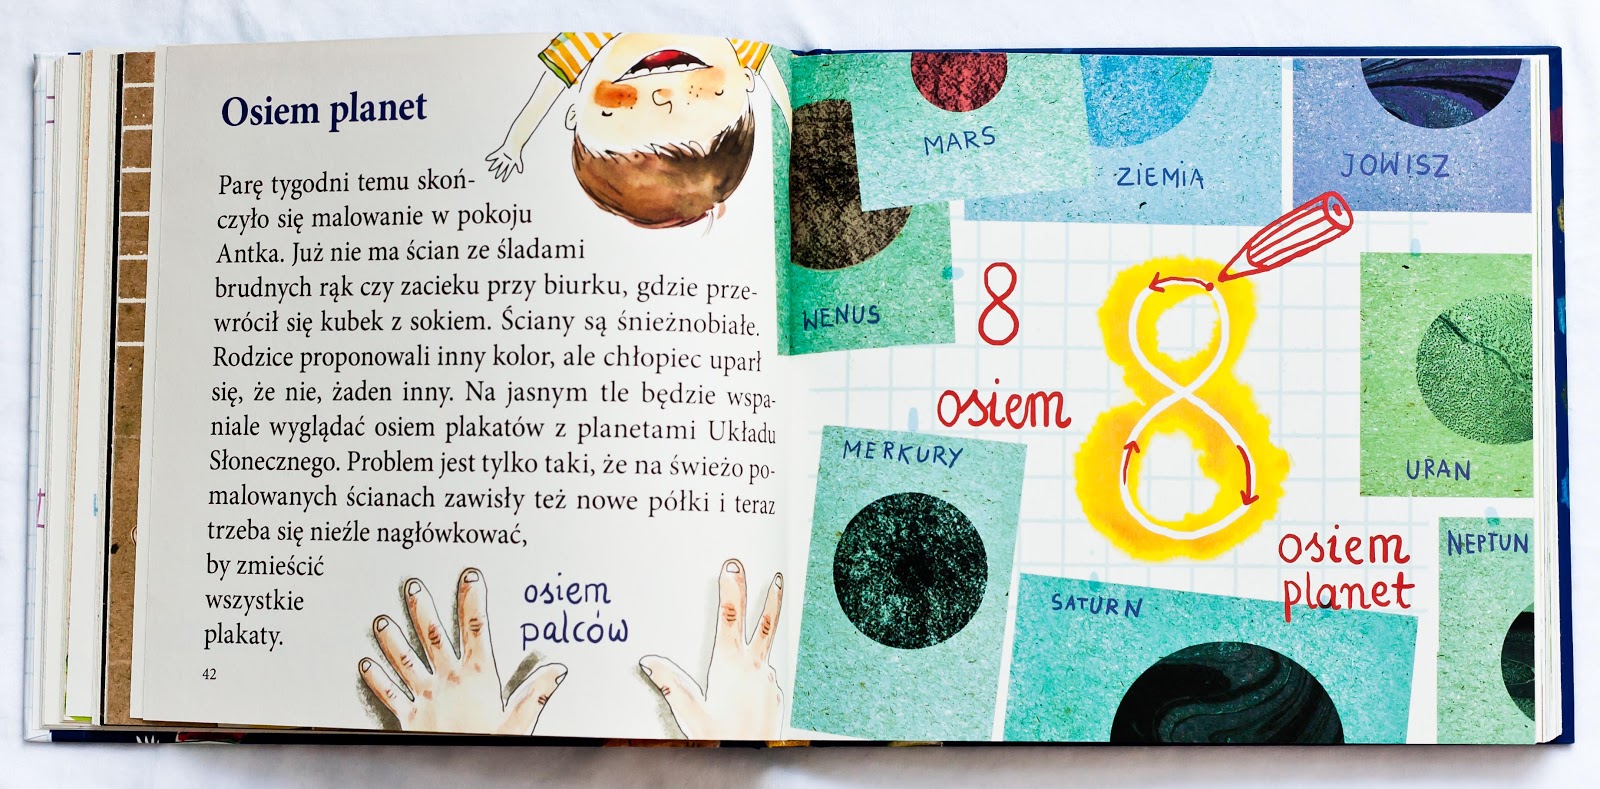 Osiem planet
Parę tygodni temu skoń-
czyło się malowanie w pokoju
Antka. Już nie ma ścian ze śladami
brudnych rąk czy zacieku przy biurku, gdzie prze-
wrócił się kubek z sokiem. Ściany są śnieżnobiałe.
Rodzice proponowali inny kolor, ale chłopiec uparł
się, że nie, żaden inny. Na jasnym tle będzie wspa-
niale wyglądać osiem plakatów z planetami Układu
Słonecznego. Problem jest tylko taki, że na świeżo po-
malowanych ścianach zawisły też nowe półki i teraz
trzeba się nieźle nagłówkować,
by zmieścić
wszystkie
plakaty.
osiem
palców
42
MARS
ZIEMIA
JOWISZ
WENUS
8
8
osiem
MERKURY
URAN
osiem
planet
NEPTUN
SATURN